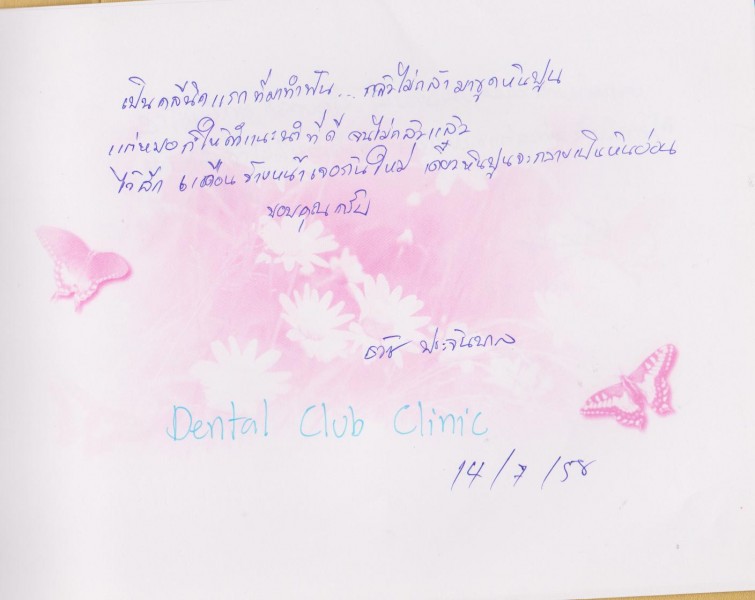 เป็นคลีนิคแรกที่มาทำฟัน... กลัวไม่กล้ามาขูดหินปูน
แต่หมอก็ให้คำแนะนำที่ดี จนไม่กลัวแล้ว
ไว้อีก 6 เดือนข้างหน้าเจอกันใหม่ เดี๋ยวหินปูนจะกลายเป็นหินอ่อน
ขอบคุณครับ
ธวัช
Dental Club Clinic
14/7/58